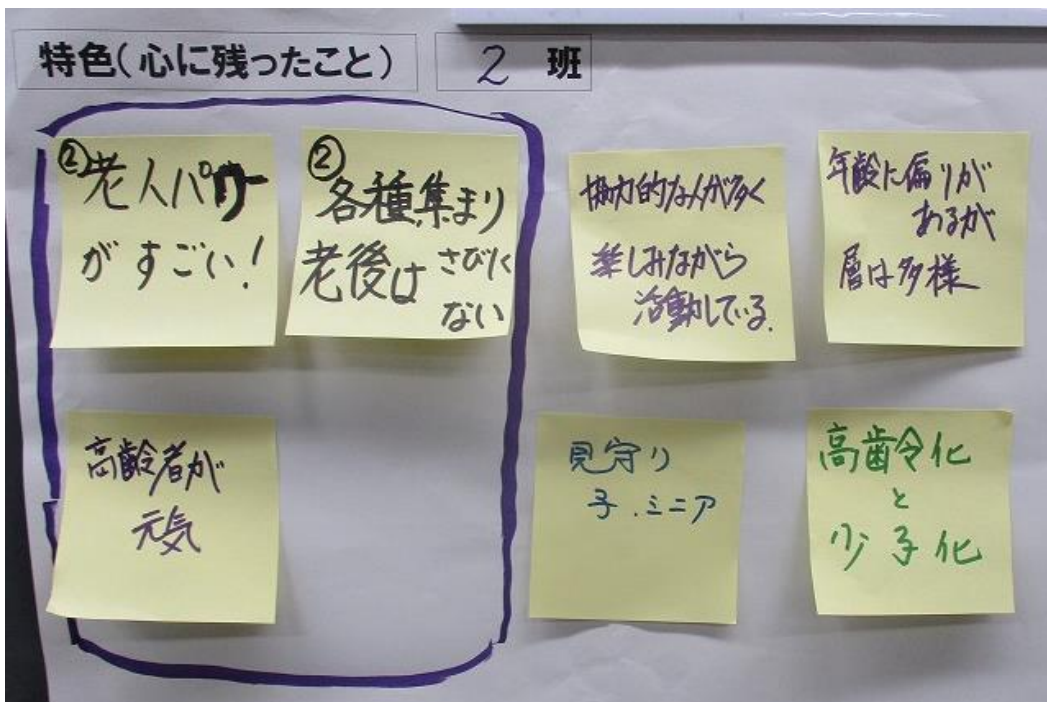 特色(心に残ったこと)
2 班
②老人パワー
がすごい!
②各種集まり
老後はさびしく
ない
協力的な人が多く
楽しみながら
活動している.
年齢に偏りが
あるが
層は多様
高齢者が
元気
見守り
子.ミニア
高齢化
と
少子化